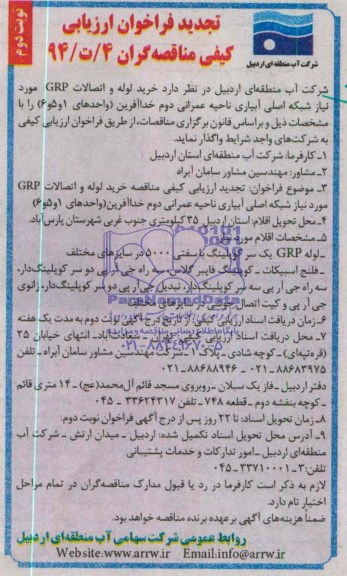 نوبت دوم
تجدید فراخوان ارزیابی
کیفی مناقصه‌گران ۹۴/ت/۴
شرکت آب منطقه‌ای اردبیل
شرکت آب منطقه‌ای اردبیل در نظر دارد خرید لوله و اتصالات GRP مورد
نیاز شبکه اصلی آبیاری ناحیه عمرانی دوم خداآفرین (واحدهای ۱و۵و۶) را با
مشخصات ذیل و براساس قانون برگزاری مناقصات، از طریق فراخوان ارزیابی کیفی
به شرکت‌های واجد شرایط واگذار نماید.
۱ـ کارفرما: شرکت آب منطقه‌ای استان اردبیل
۲ـ مشاور: مهندسین مشاور سامان آبراه
۳ـ موضوع فراخوان: تجدید ارزیابی کیفی مناقصه خرید لوله و اتصالات GRP
مورد نیاز شبکه اصلی آبیاری ناحیه عمرانی دوم خداآفرین(واحدهای ۱و۵و۶)
۴ـ محل تحویل اقلام: استان اردبیل ۳۵ کیلومتری جنوب غربی شهرستان پارس‌آباد.
۵ـ مشخصات اقلام مورد نیاز:
ـ لوله GRP یک سر کوپلینگ با سفتی ۵۰۰۰ در سایزهای مختلف
ـ فلنج اسپیگات ـ کوپلینگ فایبر گلاس، سه راه جی آر پی دو سر کوپلینگ‌دار،
سه راه جی آر پی سه سر کوپلینگ‌دار، تبدیل جی آر پی دو سر کوپلینگ‌دار، زانوی
جی آر پی و کیت اتصال جی آر پی در سایزهای مختلف
۶ـ زمان دریافت اسناد ارزیابی کیفی: از تاریخ درج آگهی نوبت دوم به مدت یک هفته
۷ـ محل دریافت اسناد ارزیابی کیفی: تهران ـ سعادت‌آباد ـ انتهای خیابان ۳۵
(قره‌تپه‌ای) ـ کوچه شادی ـ پلاک ۲ ـ شرکت مهندسین مشاور سامان آبراه ـ تلفن
۸۸۶۸۳۹۷۵ـ۰۲۱ ـ ۸۸۶۸۸۹۴۶ـ۰۲۱
دفتر اردبیل ـ فاز یک سبلان ـ روبروی مسجد قائم آل‌محمد(عج) ـ ۱۴ متری قائم
ـ کوچه بنفشه دوم ـ قطعه ۷۴۸ ـ تلفن ۳۳۶۲۴۳۱۷ ـ ۰۴۵
۸ـ زمان تحویل اسناد: تا ۲۲ روز پس از درج آگهی فراخوان نوبت دوم.
۹ـ آدرس محل تحویل اسناد تکمیل شده: اردبیل ـ میدان ارتش ـ شرکت آب
منطقه‌ای اردبیل ـ امور تدارکات و خدمات پشتیبانی
تلفن:۳ـ۳۳۷۱۰۰۰۱ـ۰۴۵
لازم به ذکر است کارفرما در رد یا قبول مدارک مناقصه‌گران در تمام مراحل
اختیار تام دارد.
ضمناً هزینه‌های آگهی برعهده برنده مناقصه خواهد بود.
روابط عمومی شرکت سهامی آب منطقه‌ای اردبیل
Website:www.arrw.ir Email:info@arrw.ir